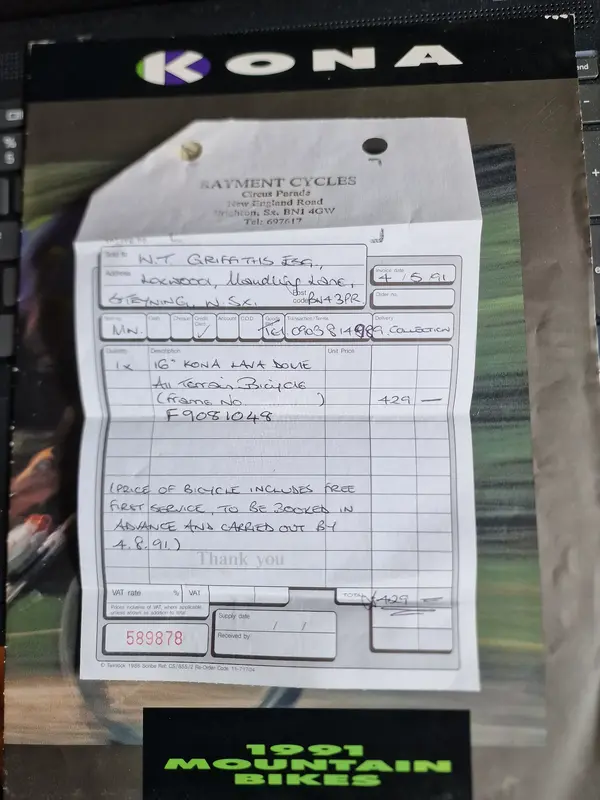 KONA
RAYMENT CYCLES
Circus Parade
New England Road
Brighton, Sx. BN1 4GW
Tel: 697617
Sold to N.T. GRIFFITHS ESQ.,
Address LOXWOOD, Maudlin Lane,
STEYNING, W. SX. Post code BN43PR
Invoice date 4/5.91
Order no.
Sold by Cash Cheque Credit Card Account C.O.D. Goods Transaction/Terms Delivery
MN. Tel 0903 814989. COLLECTION
Quantity Description Unit Price
1x 16" KONA LAVA DOME
All Terrain Bicycle
(Frame No. ) 429 —
F9081048
(PRICE OF BICYCLE INCLUDES FREE
FIRST SERVICE, TO BE BOOKED IN
ADVANCE AND CARRIED OUT BY
4.8.91.)
Thank you
VAT rate % VAT TOTAL £429 —
Prices inclusive of VAT, where applicable,
unless shown as addition to total
589878
Supply date / /
Received by
1991
MOUNTAIN
BIKES